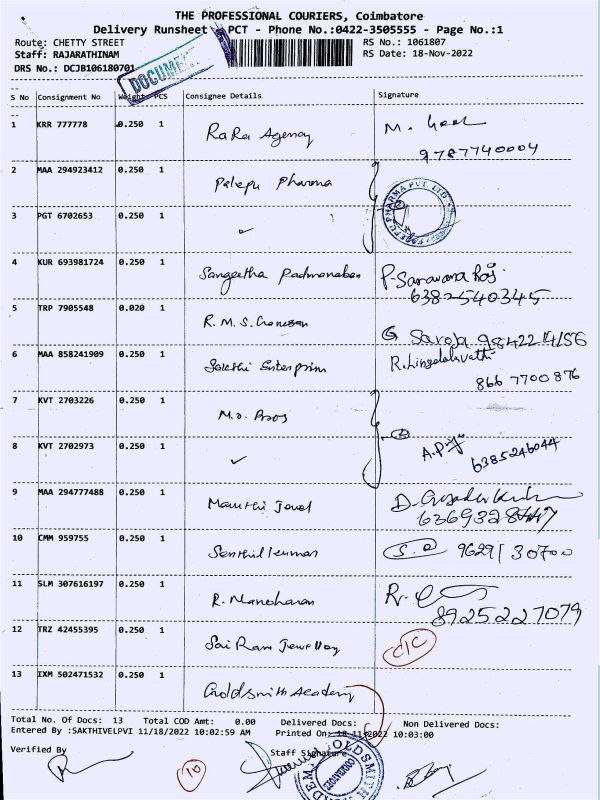 THE PROFESSIONAL COURIERS, Coimbatore
Delivery Runsheet PCT - Phone No.:0422-3505555 - Page No.:1
Route: CHETTY STREET
RS No.: 1061807
Staff: RAJARATHINAM
RS Date: 18-Nov-2022
DRS No.: DCJB106180701
DOCUMENT
S No Consignment No Weight PCS Consignee Details Signature
1 KRR 777778 0.250 1 RaRa Agency
9787740004
2 MAA 294923412 0.250 1 Palepu Pharma
PALEPU PHARMA PVT. LTD
3 PGT 6702653 0.250 1 ✓
4 KUR 693981724 0.250 1 Sangeetha Padmanaban P. Saravana Raj
6382540345
5 TRP 7905548 0.020 1 R. M. S. Ganesan
G Saroja 9842214156
6 MAA 858241909 0.250 1 Sakthi Enterprises R. Lingalakvathi
866 7700 876
7 KVT 2703226 0.250 1 M.D. Bros
2
8 KVT 2702973 0.250 1 ✓ A. Priya 6385246044
9 MAA 294777488 0.250 1 Maruthi Jewel
6369328447
10 CMM 959755 0.250 1 Senthilkumar 9629130700
11 SLM 307616197 0.250 1 R. Manoharan
8925227079
12 TRZ 42455395 0.250 1 Sai Ram Jewellery C/C
13 IXM 502471532 0.250 1 Goldsmith Academy
Total No. Of Docs: 13 Total COD Amt: 0.00 Delivered Docs: Non Delivered Docs:
Entered By :SAKTHIVELPVI 11/18/2022 10:02:59 AM Printed On: 18-11-2022 10:03:00
Verified By Staff Signature
10
GOLDSMITH
COIMBATORE